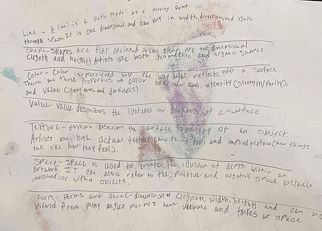 Line - A line is a path made by a moving point
through space. It is one dimensional and can vary in width, direction, and length
Shape - Shapes are flat enclosed areas that are two dimensional
(length and height) Artists use both geometric and organic shapes
Color - Color is perceived by the way light reflects off a surface.
There are three properties of color and intensity (strength/purity),
and value (lightness and darkness)
Value - Value describes the lightness or darkness of a surface
Texture - texture describes the surface quality of an object.
Artists use both actual texture and implied texture (how things
look like how they feel).
Space - Space is used to create the illusion of depth within an
artwork. It can also refer to the positive and negative space between
around or within objects.
Form - Forms are three-dimensional (length, width, height) and can be
viewed from many angles. Forms have volume and takes up space